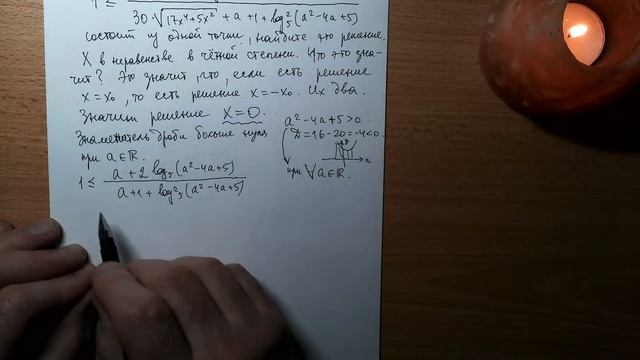 1 ≤
30·√(17x⁴+5x²) + a + 1 + log₅²(a²-4a+5)
состоит из одной точки, найдите это решение.
X в неравенстве в чётной степени. Что это зна-
чит? Это значит, что, если есть решение
x = x₀, то есть решение x = -x₀. Их два.
Значит решение X = 0.
Знаменатель дроби больше нуля
при a ∈ ℝ.
a² - 4a + 5 > 0
D = 16 - 20 = -4 < 0
a
при ∀ a ∈ ℝ.
1 ≤ (a + 2 log₅(a²-4a+5)) / (a + 1 + log²₅(a²-4a+5))